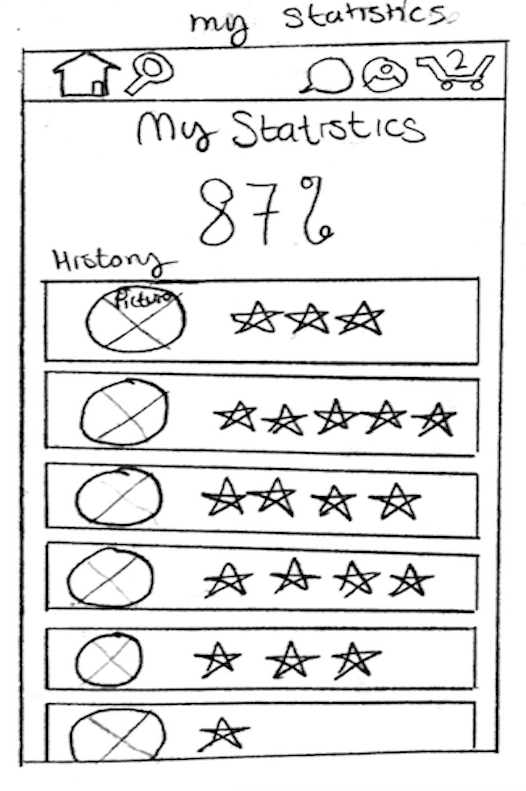 my statistics
2
My Statistics
87%
History
Picture